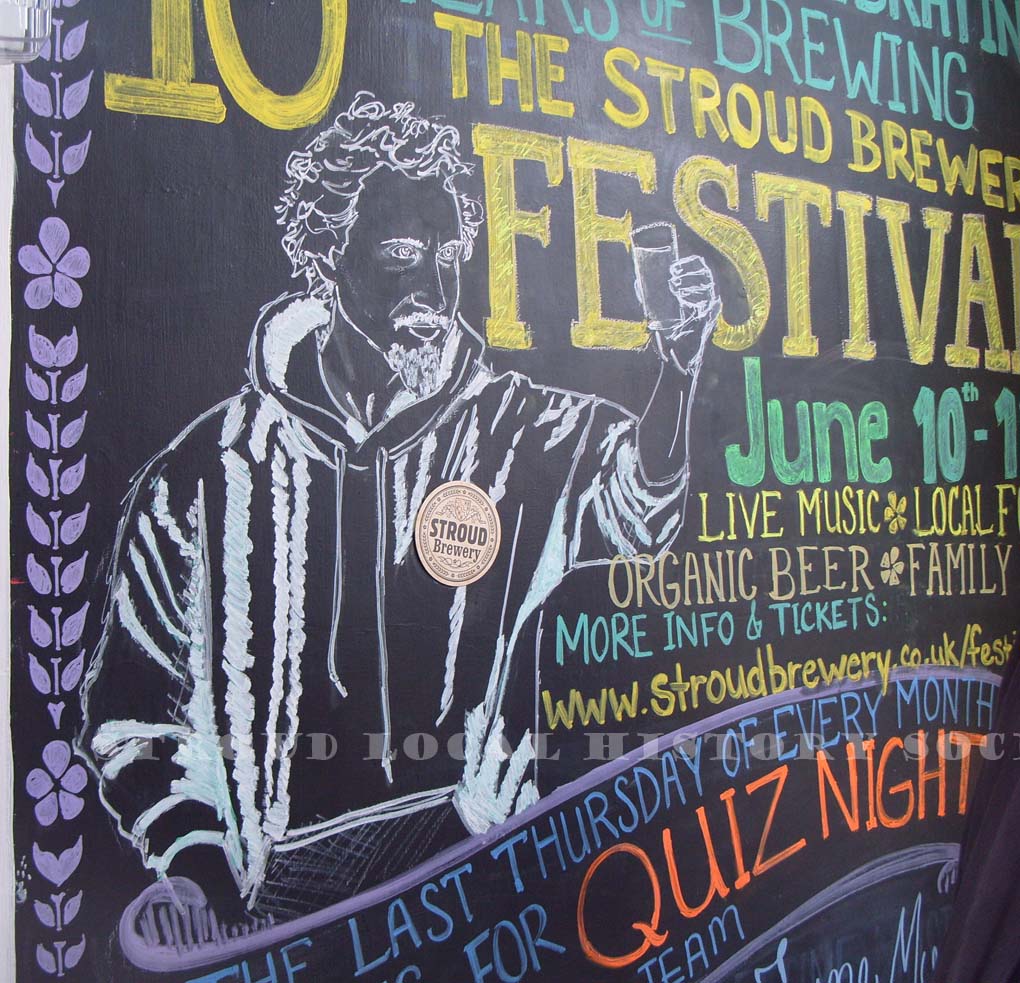 10
YEARS OF BREWING
THE STROUD BREWER
FESTIVAL
June 10th-1
LIVE MUSIC LOCAL F
ORGANIC BEER FAMILY
MORE INFO & TICKETS:
www.stroudbrewery.co.uk/fest
STROUD
Brewery
STROUD LOCAL HISTORY SOC
THE LAST THURSDAY OF EVERY MONTH
FOR QUIZ NIGHT
TEAM